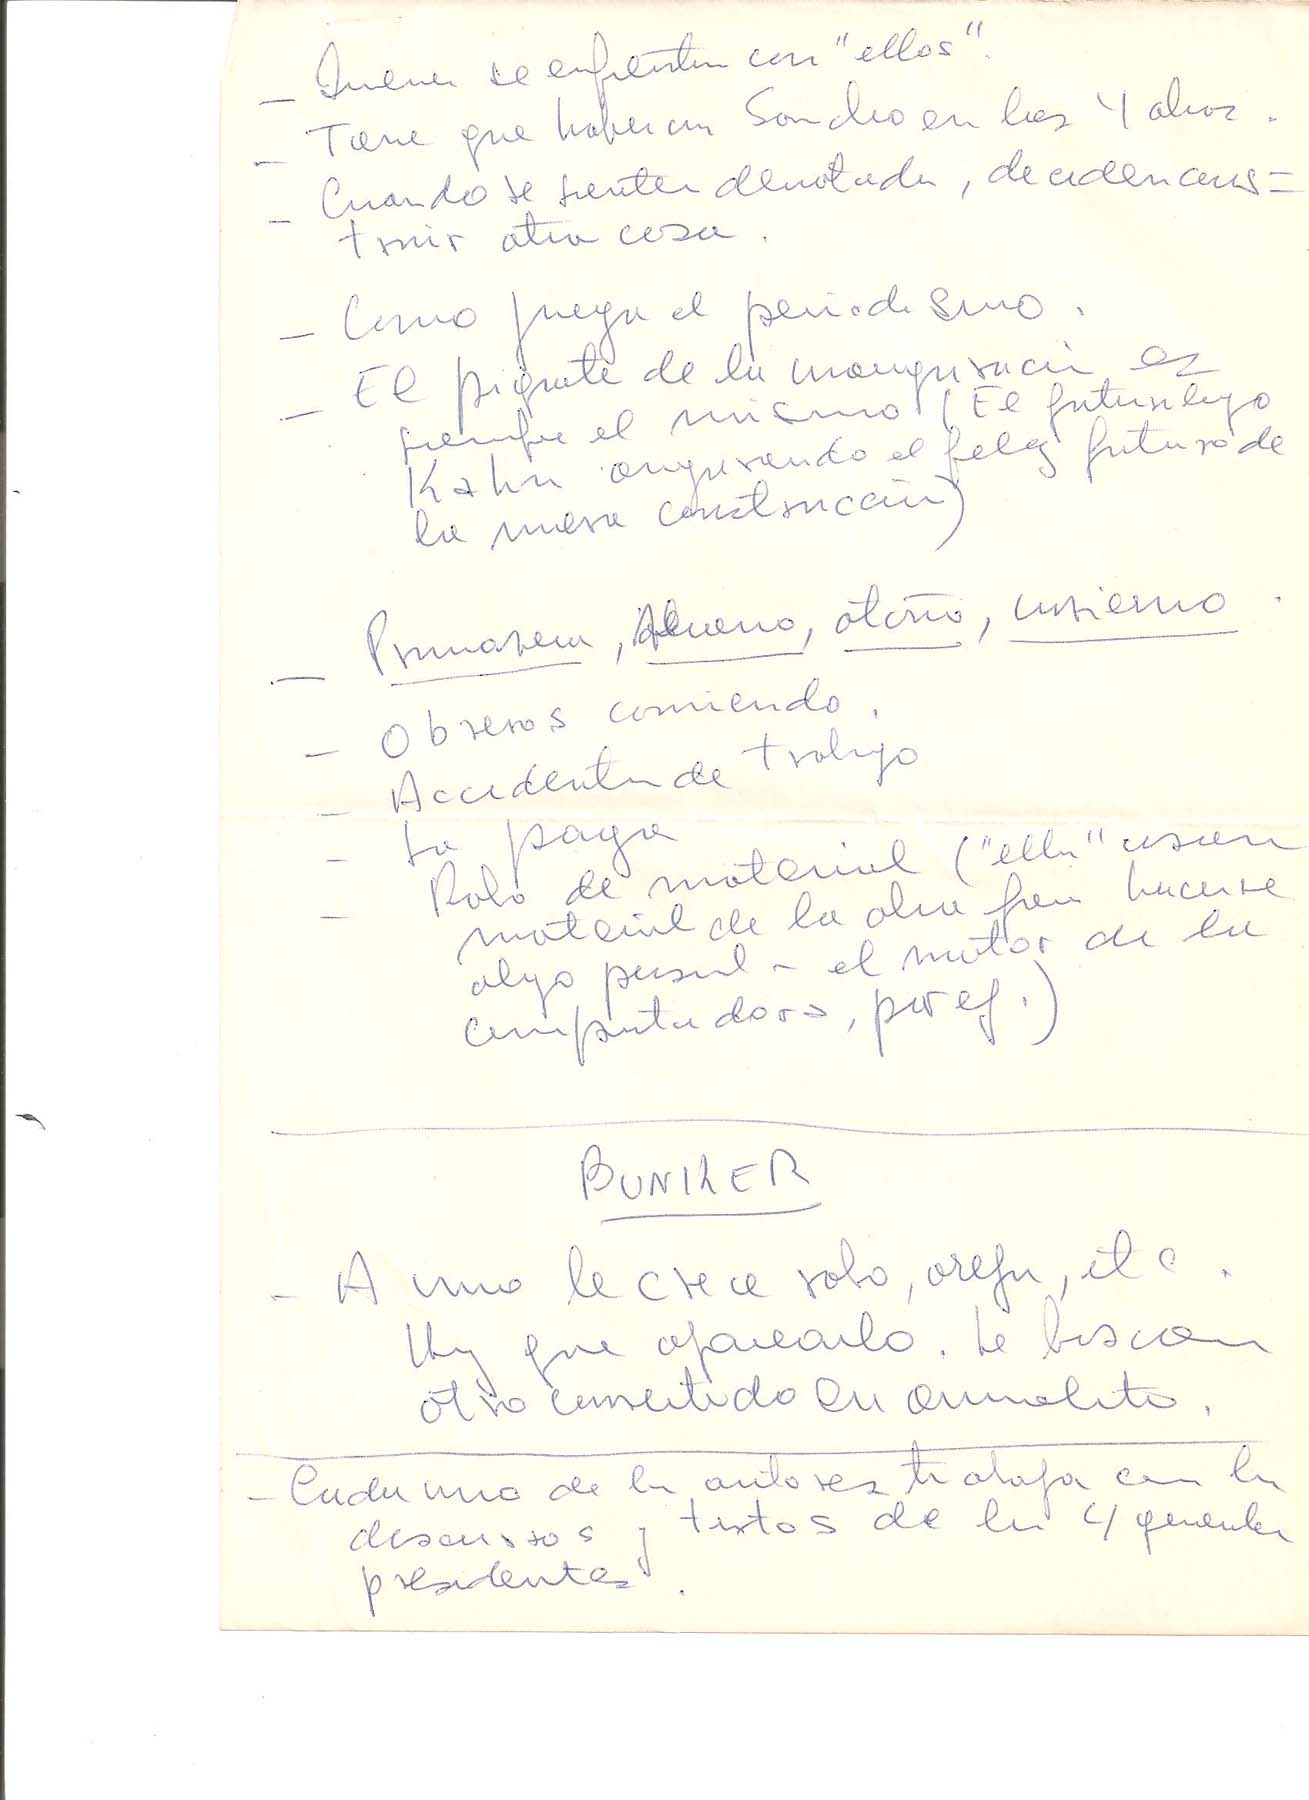 - Quienes se enfrentan con "ellos".
- Tiene que haber un Sandro en las 4 obras.
- Cuando se sienten derrotados, deciden cons=
truir otra cosa.
- Como juega el periodismo.
- El piquete de la inauguración es
siempre el mismo (El futurólogo
Kahn augurando el feliz futuro de
la nueva construcción)
- Primavera, Verano, otoño, invierno.
- Obreros comiendo.
- Accidente de trabajo
- La paga
- Robo de material ("ellos" usan
material de la obra para hacerse
algo personal - el motor de la
computadora, por ej.)
BUNKER
- A uno le crece rabo, oreja, etc.
Hay que aparearlo. Le buscan
otro convertido en animalito.
- Cada uno de los autores trabaja con los
discursos y textos de los 4 generales
presidentes.